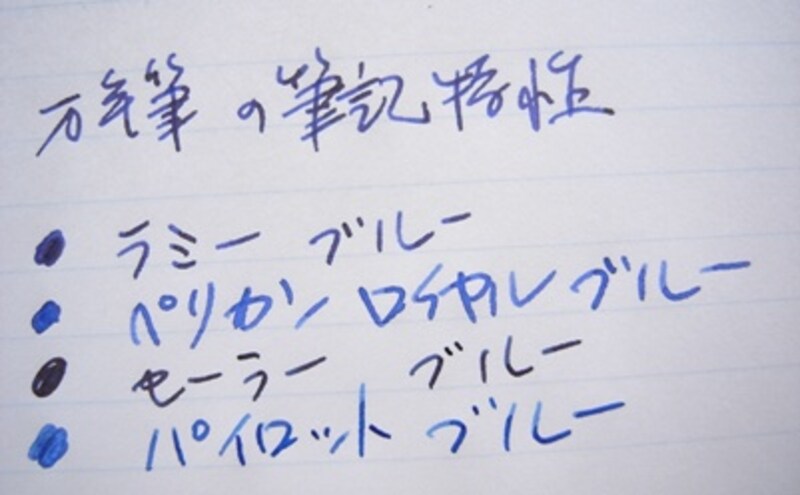 万年筆の筆記特性
● ラミー ブルー
● ペリカン ロイヤルブルー
● セーラー ブルー
● パイロット ブルー